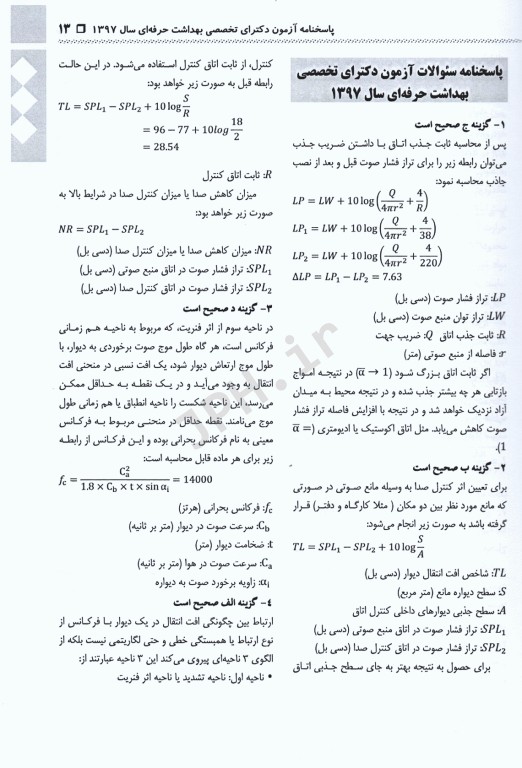 پاسخنامه آزمون دکترای تخصصی بهداشت حرفه‌ای سال ۱۳۹۷ ❒ ۱۳
پاسخنامه سئوالات آزمون دکترای تخصصی
بهداشت حرفه‌ای سال ۱۳۹۷
۱- گزینه ج صحیح است
پس از محاسبه ثابت جذب اتاق با داشتن ضریب جذب
می‌توان رابطه زیر را برای تراز فشار صوت قبل و بعد از نصب
جاذب محاسبه نمود:
LP = LW + 10 log(Q/4πr² + 4/R)
LP₁ = LW + 10 log(Q/4πr² + 4/38)
LP₂ = LW + 10 log(Q/4πr² + 4/220)
ΔLP = LP₁ − LP₂ = 7.63
LP: تراز فشار صوت (دسی بل)
LW: تراز توان منبع صوت (دسی بل)
R: ثابت جذب اتاق Q: ضریب جهت
r: فاصله از منبع صوتی (متر)
اگر ثابت اتاق بزرگ شود (ᾱ → 1) در نتیجه امواج
بازتابی هر چه بیشتر جذب شده و در نتیجه محیط به میدان
آزاد نزدیک خواهد شد و در نتیجه با افزایش فاصله تراز فشار
صوت کاهش می‌یابد. مثل اتاق اکوستیک یا ادیومتری (ᾱ =
1).
۲- گزینه ب صحیح است
برای تعیین اثر کنترل صدا به وسیله مانع صوتی در صورتی
که مانع مورد نظر بین دو مکان ( مثلا کارگاه و دفتر) قرار
گرفته باشد به صورت زیر انجام می‌شود:
TL = SPL₁ − SPL₂ + 10 log S/A
TL: شاخص افت انتقال دیوار (دسی بل)
S: سطح دیواره مانع (متر مربع)
A: سطح جذبی دیوارهای داخلی کنترل اتاق
SPL₁: تراز فشار صوت در اتاق منبع صوتی (دسی بل)
SPL₂: تراز فشار صوت در اتاق کنترل صدا (دسی بل)
برای حصول به نتیجه بهتر به جای سطح جذبی اتاق
کنترل، از ثابت اتاق کنترل استفاده می‌شود. در این حالت
رابطه قبل به صورت زیر خواهد بود:
TL = SPL₁ − SPL₂ + 10 log S/R
= 96 − 77 + 10log 18/2
= 28.54
R: ثابت اتاق کنترل
میزان کاهش صدا یا میزان کنترل صدا در شرایط بالا به
صورت زیر خواهد بود:
NR = SPL₁ − SPL₂
NR: میزان کاهش صدا یا میزان کنترل صدا (دسی بل)
SPL₁: تراز فشار صوت در اتاق منبع صوتی (دسی بل)
SPL₂: تراز فشار صوت در اتاق کنترل صدا (دسی بل)
۳- گزینه د صحیح است
در ناحیه سوم از اثر فنریت، که مربوط به ناحیه هم زمانی
فرکانس است، هر گاه طول موج صوت برخوردی به دیوار، با
طول موج ارتعاش دیوار شود، یک افت نسبی در منحنی افت
انتقال به وجود می‌آید و در یک نقطه به حداقل ممکن
می‌رسد، این ناحیه شکست را ناحیه انطباق یا هم زمانی طول
موج می‌نامند. نقطه حداقل در منحنی مربوط به فرکانس
معینی به نام فرکانس بحرانی بوده و این فرکانس از رابطه
زیر برای هر ماده قابل محاسبه است:
f_c = C_a² / (1.8 × C_b × t × sin α_i) = 14000
f_c: فرکانس بحرانی (هرتز)
C_b: سرعت صوت در دیوار (متر بر ثانیه)
t: ضخامت دیوار (متر)
C_a: سرعت صوت در هوا (متر بر ثانیه)
α_i: زاویه برخورد صوت به دیواره
۴- گزینه الف صحیح است
ارتباط بین چگونگی افت انتقال در یک دیوار با فرکانس از
نوع ارتباط یا همبستگی خطی و حتی لگاریتمی نیست بلکه از
الگوی ۳ ناحیه‌ای پیروی می‌کند این ۳ ناحیه عبارتند از:
• ناحیه اول: ناحیه تشدید یا ناحیه اثر فنریت